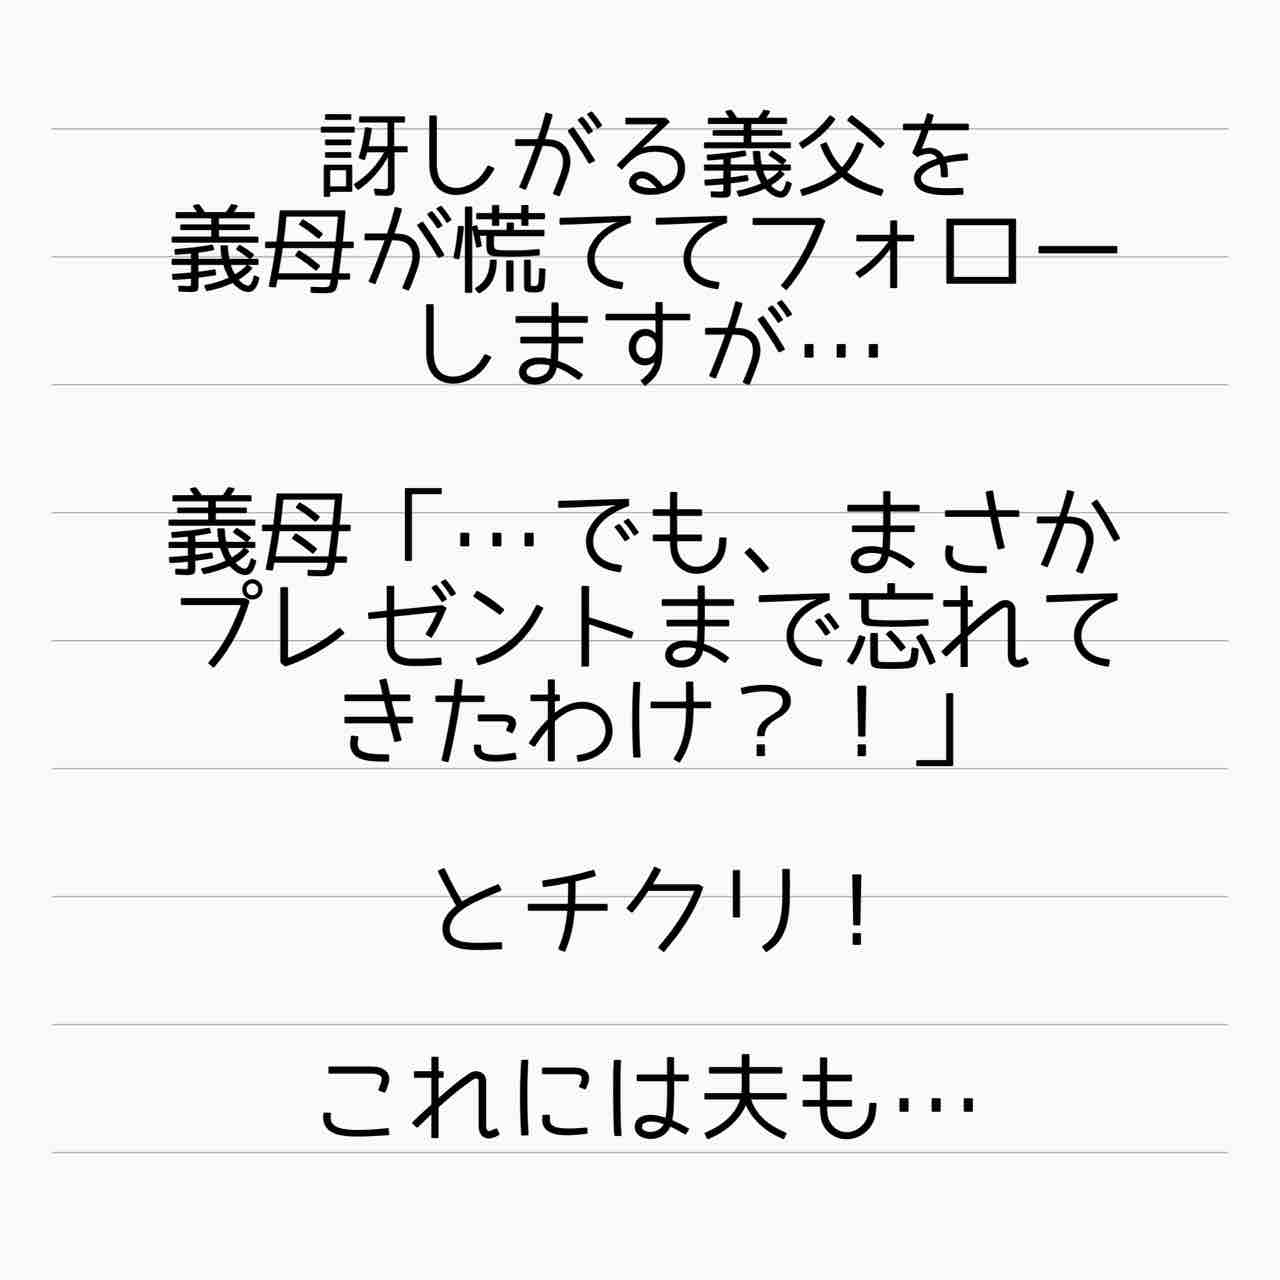 訝しがる義父を
義母が慌ててフォロー
しますが…
義母「…でも、まさか
プレゼントまで忘れて
きたわけ？！」
とチクリ！
これには夫も…